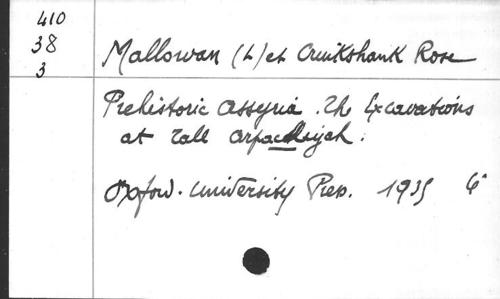 410
38
3
Mallowan (L) et Cruikshank Rose
Prehistoric Assyria. The Excavations
at Tall Arpachiyah.
Oxford. University Press. 1935 6°